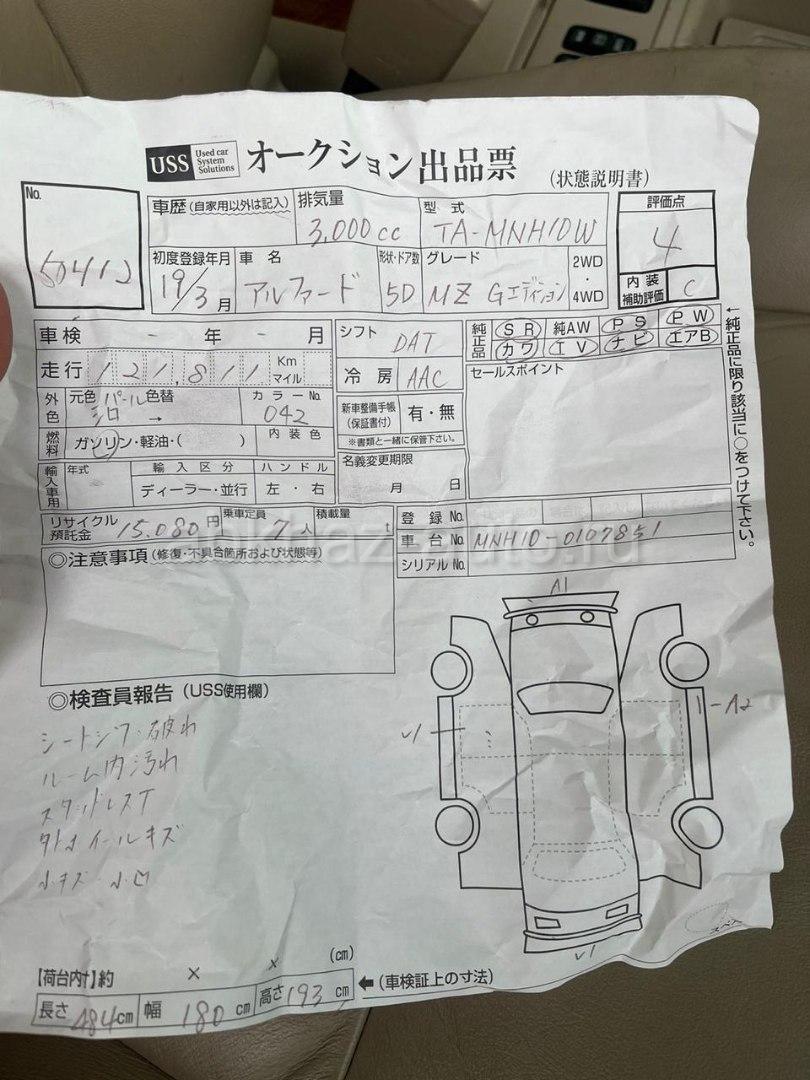 USS Used car System Solutions オークション出品票 (状態説明書)
No. 50412
車歴(自家用以外は記入) 排気量 3,000cc 型式 TA-MNH10W 評価点 4
初度登録年月 19/3月 車名 アルファード 形状・ドア数 5D グレード MZ Gエディション 2WD・4WD 内装補助評価 C
車検 - 年 - 月 シフト DAT 純正品 SR 純AW PS PW
カワ TV ナビ エアB
走行 121,811 Km マイル 冷房 AAC セールスポイント
←純正品に限り該当に○をつけて下さい。
外色 元色 パール シロ 色替 → カラーNo. 042 新車整備手帳(保証書付) 有・無
※書類と一緒に保管下さい。
燃料 ガソリン・軽油・( ) 内装色
名義変更期限 月 日
輸入車用 年式 輸入区分 ハンドル
ディーラー・並行 左・右
リサイクル預託金 15,080円 乗車定員 7人 積載量 t
登録No.
車台No. MNH10-0107851
シリアルNo.
◎注意事項(修復・不具合箇所および状態等)
abkhaz-auto.ru
◎検査員報告(USS使用欄)
シートシワ・破れ
ルーム内汚れ
スタッドレスT
外ホイールキズ
小キズ・小凹
A1
A2
【荷台内寸】約 × × (cm)
長さ 484cm 幅 180cm 高さ 193cm ←(車検証上の寸法)
スペア